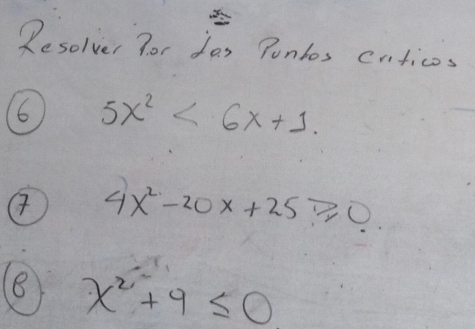 Resolver Por los Puntos criticos
6 5x² < 6x+1.
7 4x²-20x+25 ≥ 0.
8 x²+9 ≤ 0